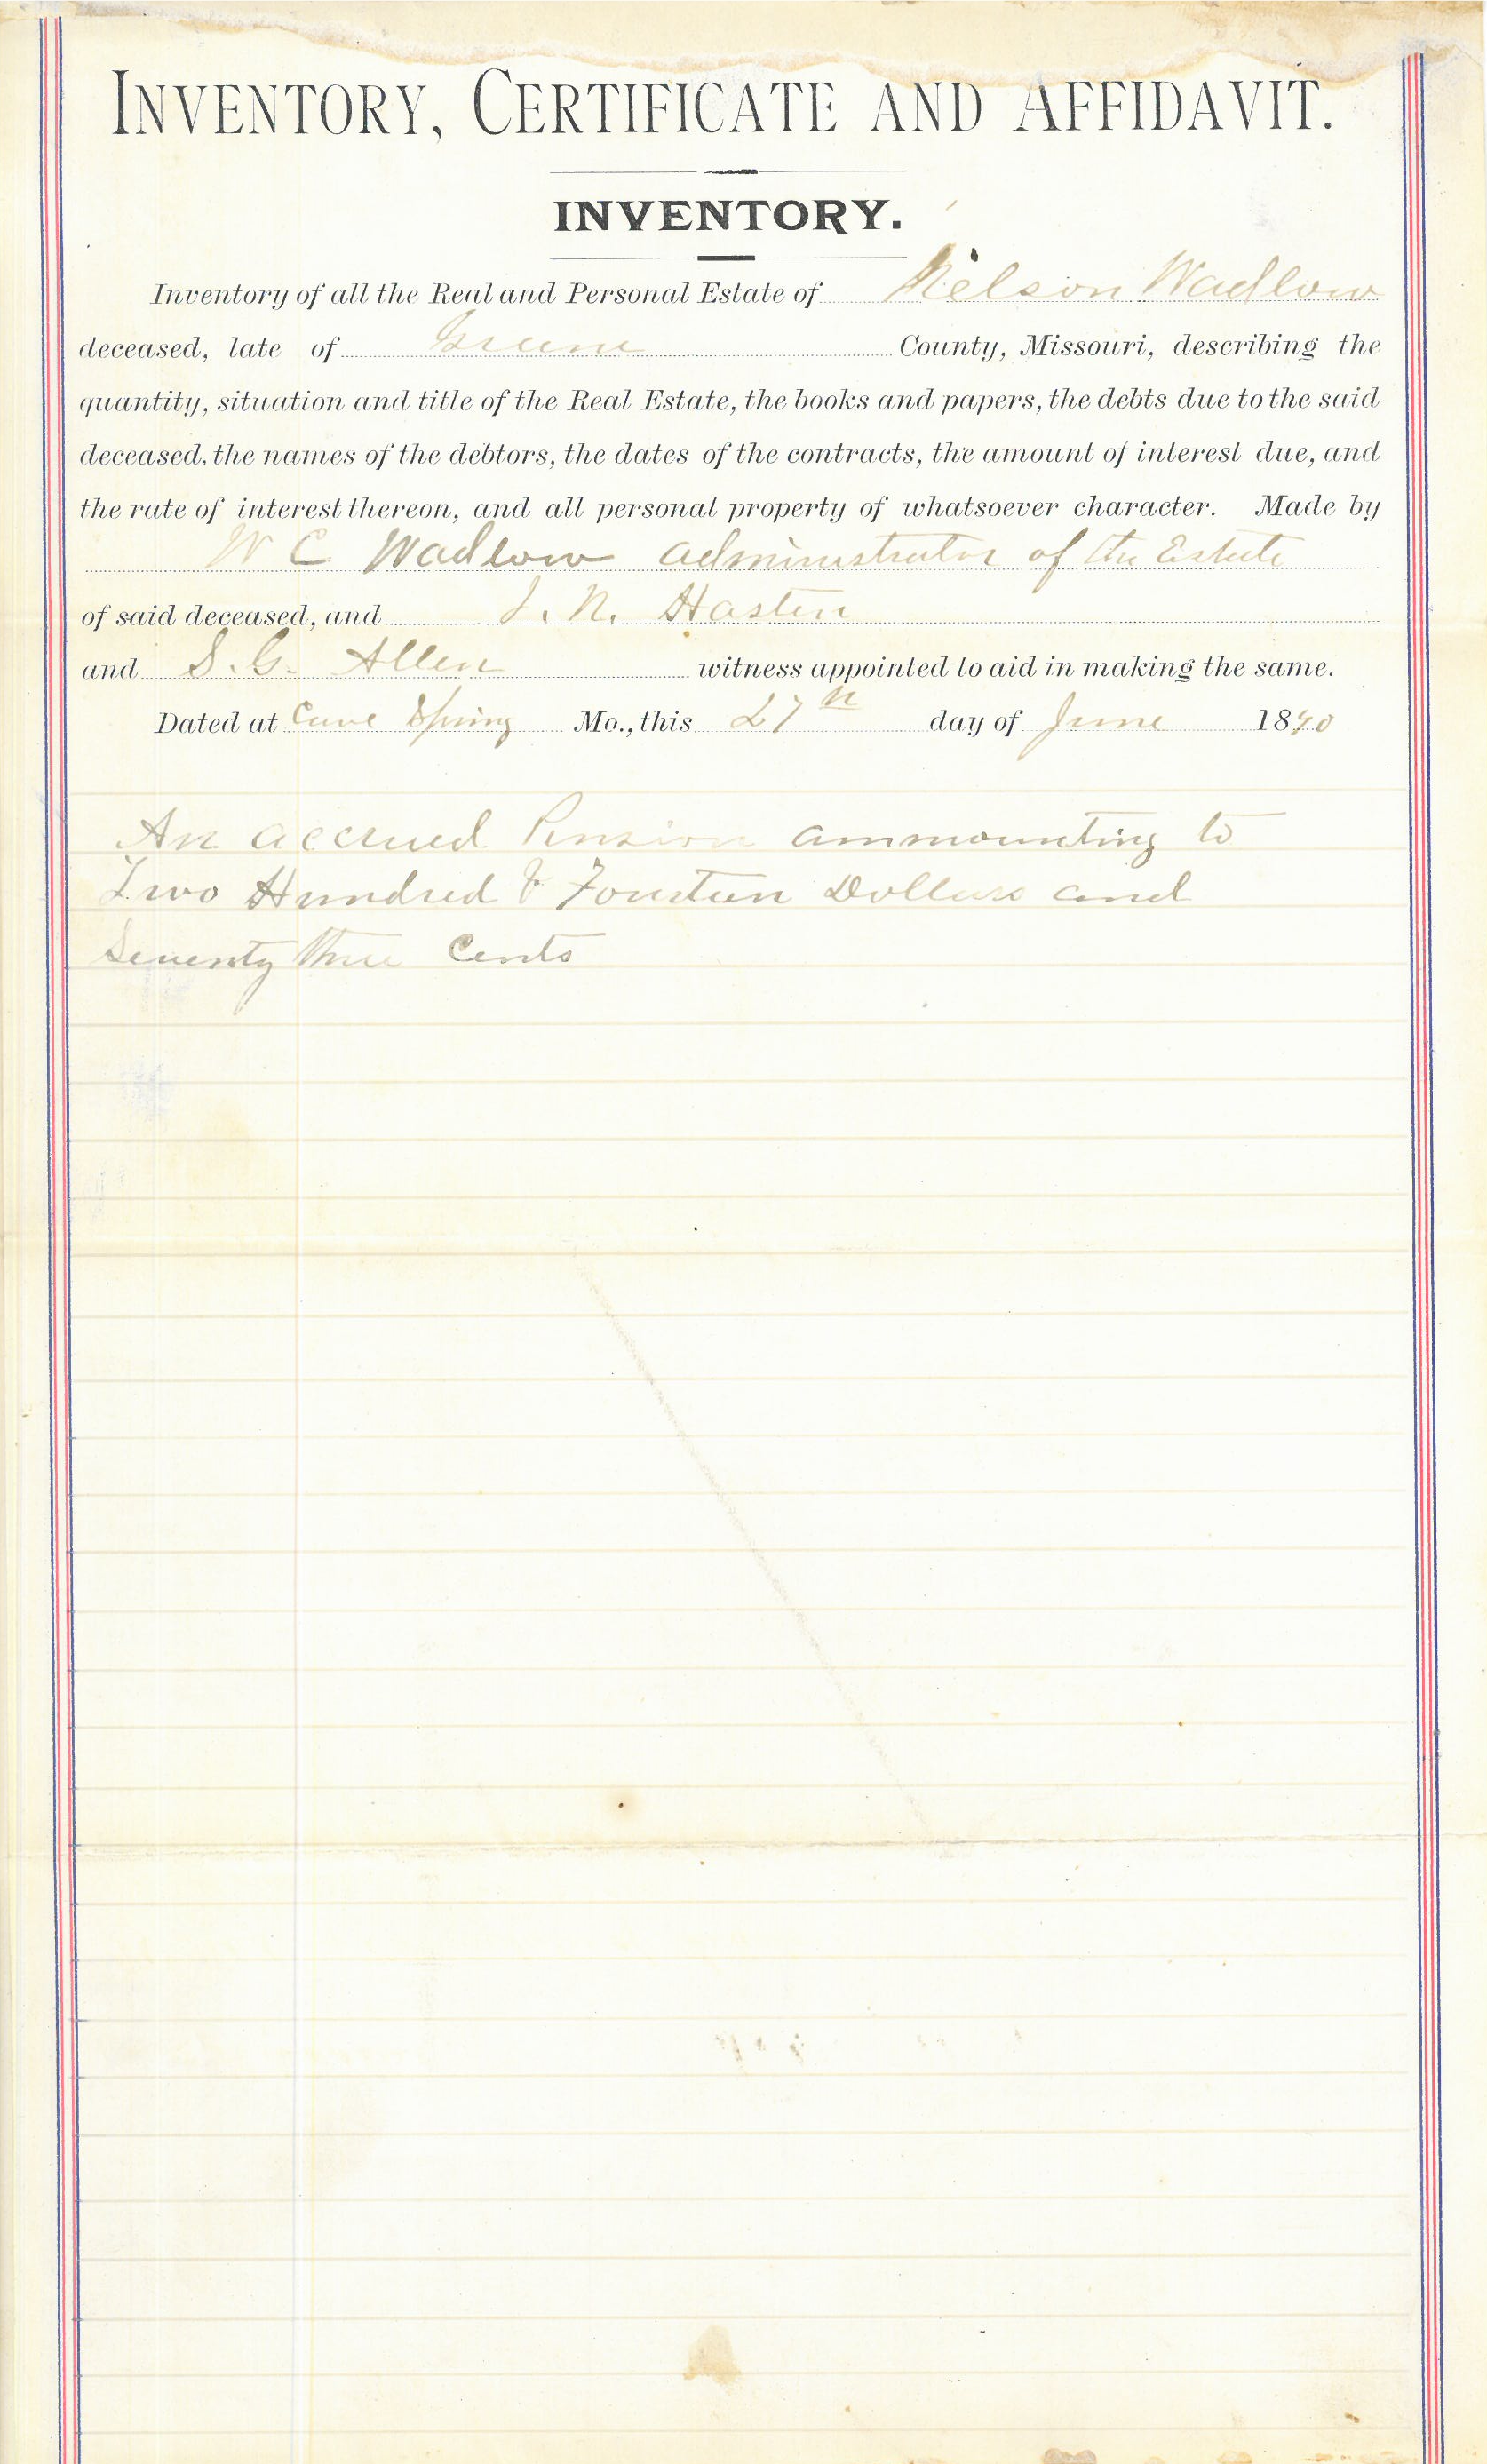 INVENTORY, CERTIFICATE AND AFFIDAVIT.
INVENTORY.
Inventory of all the Real and Personal Estate of Nelson Wadlow
deceased, late of Greene County, Missouri, describing the
quantity, situation and title of the Real Estate, the books and papers, the debts due to the said
deceased, the names of the debtors, the dates of the contracts, the amount of interest due, and
the rate of interest thereon, and all personal property of whatsoever character. Made by
W C Wadlow administrator of the Estate
of said deceased, and J. N. Hasten
and S. G. Allen witness appointed to aid in making the same.
Dated at Cave Spring Mo., this 27th day of June 1890
An accrued Pension ammounting to
Two Hundred & Fourteen Dollars and
Seventy three Cents